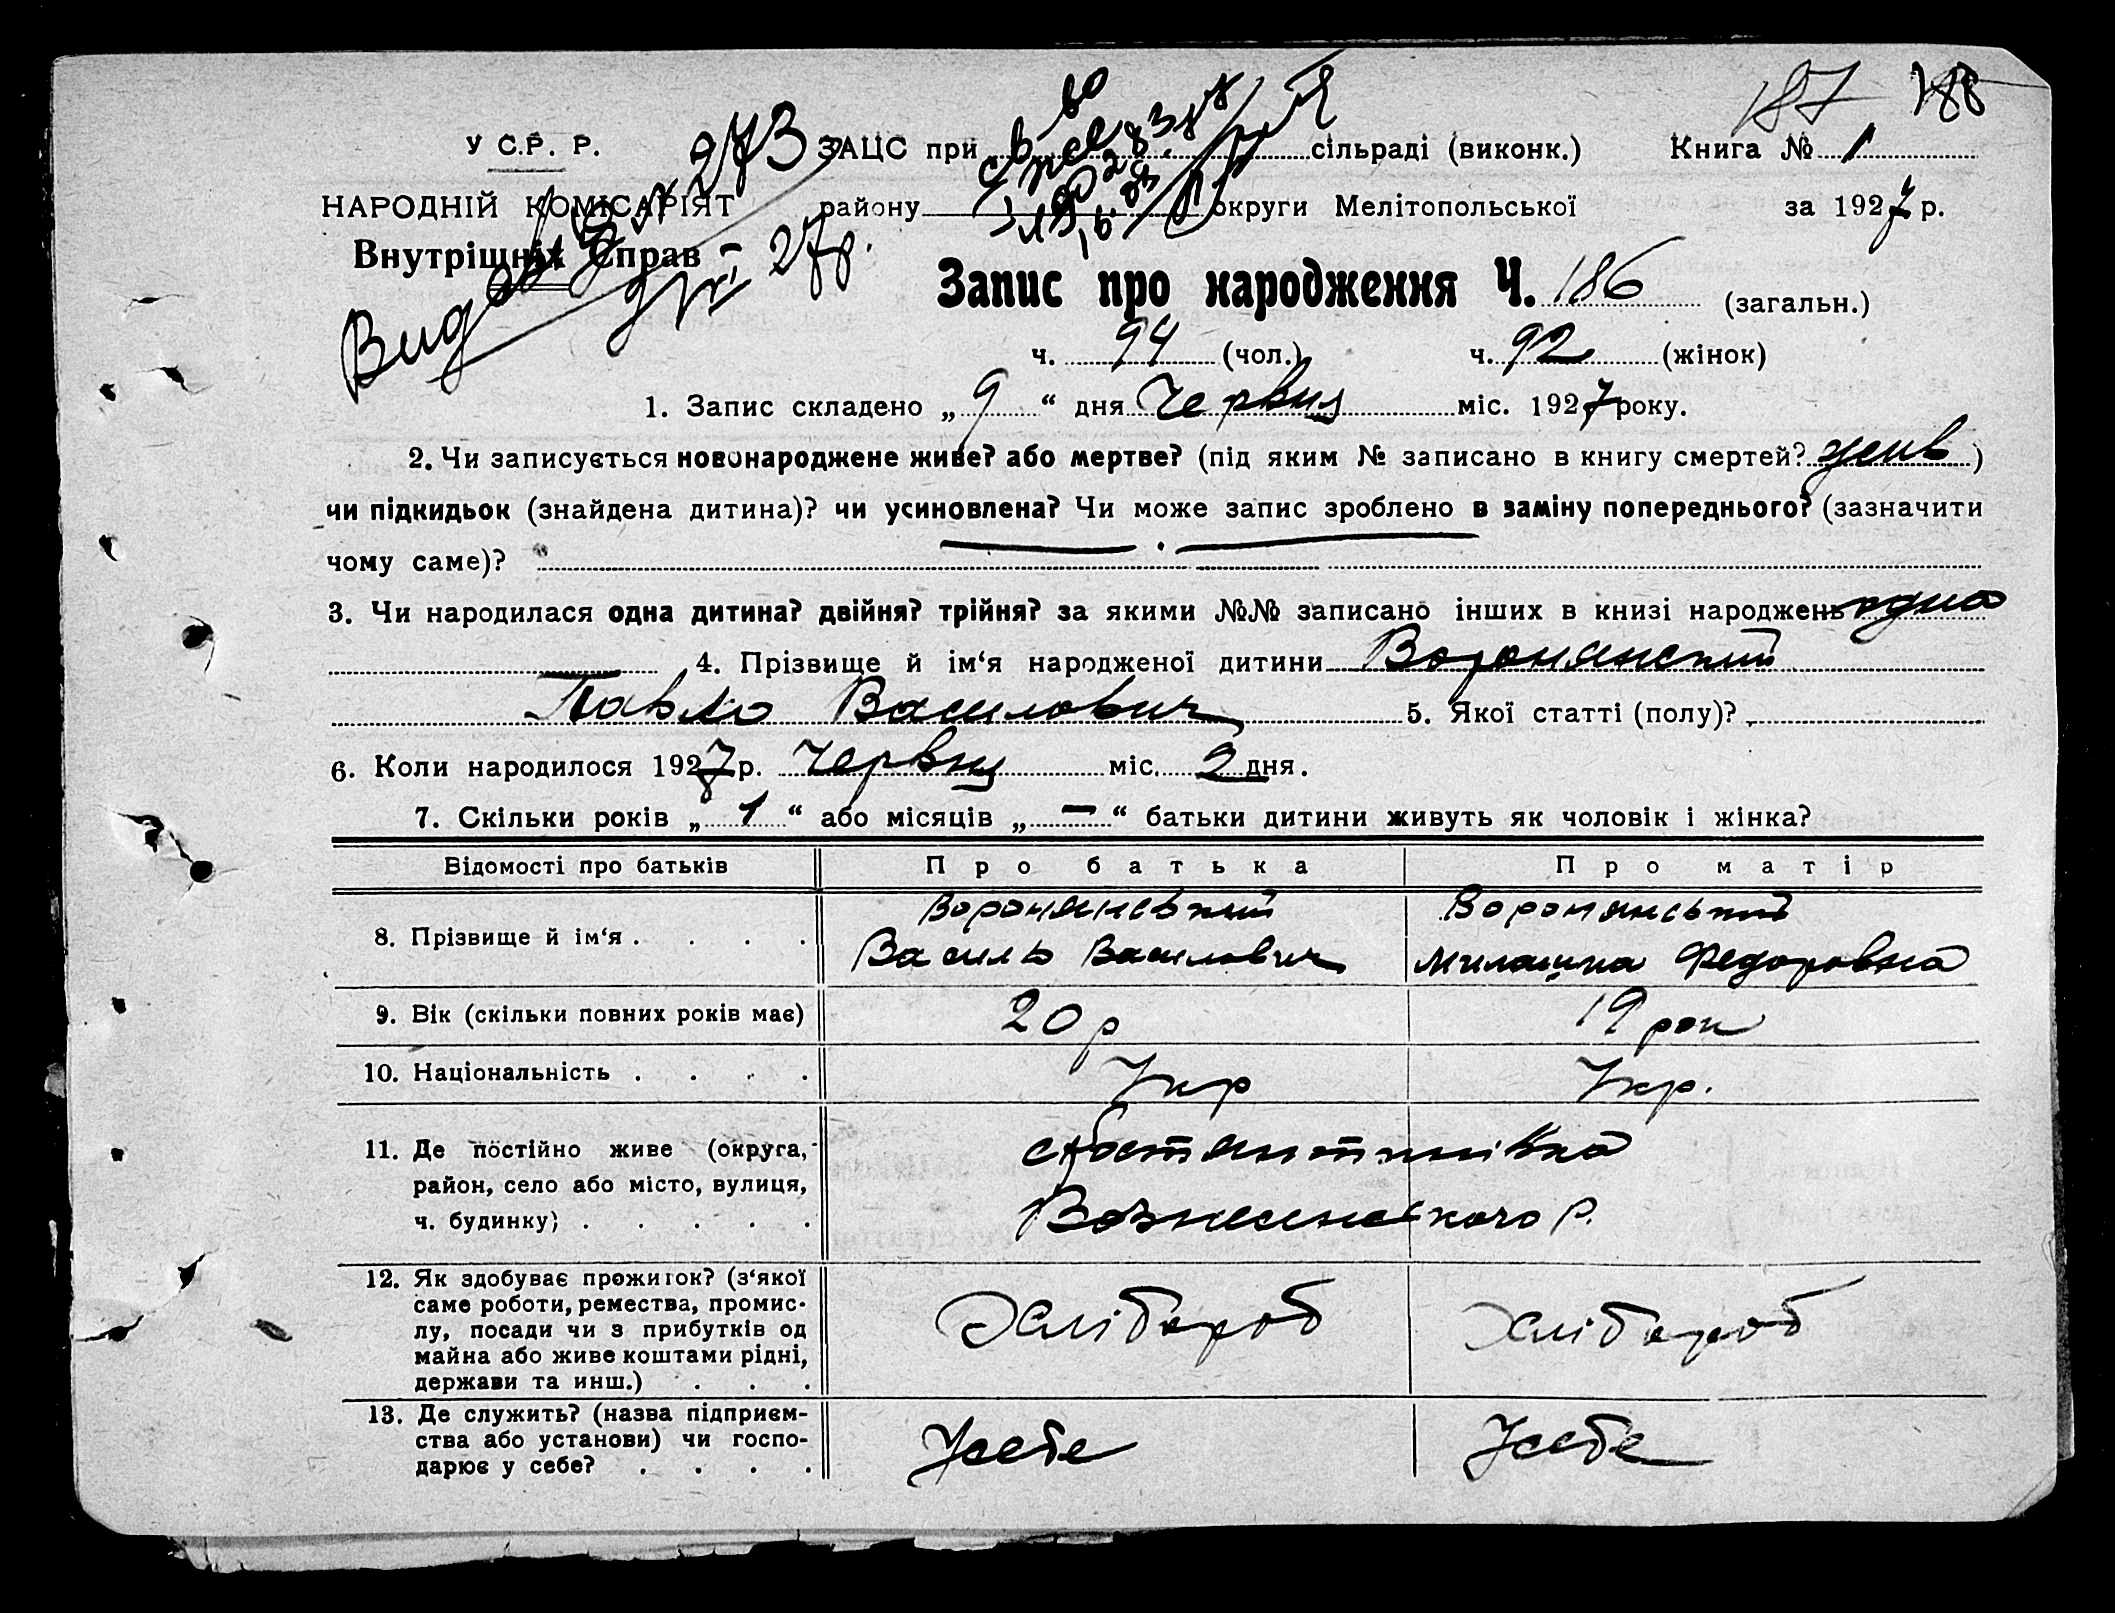 187 188
У С.Р. Р. 273 ЗАЦС при сільраді (виконк.) Книга № 1
НАРОДНІЙ КОМІСАРІЯТ району округи Мелітопольської за 1927 р.
Внутрішніх Справ 27р.
Запис про народження Ч. 186 (загальн.)
ч. 94 (чол.) ч. 92 (жінок)
1. Запис складено „ 9 “ дня Червня міс. 1927 року.
2. Чи записується новонароджене живе? або мертве? (під яким № записано в книгу смертей? )
чи підкидьок (знайдена дитина)? чи усиновлена? Чи може запис зроблено в заміну попереднього? (зазначити
чому саме)?
3. Чи народилася одна дитина? двійня? трійня? за якими №№ записано інших в книзі народжень одна
4. Прізвище й ім‘я народженої дитини Воронянский
Павло Василович 5. Якої статті (полу)?
6. Коли народилося 1927 р. Червня міс. 2 дня.
7. Скільки років „ 1 “ або місяців „ — “ батьки дитини живуть як чоловік і жінка?
Відомості про батьків Про батька Про матір
8. Прізвище й ім‘я . . . . Воронянський Воронянський
Василь Василович Федоровна
9. Вік (скільки повних років має) 20 р 19 рок
10. Національність . . . . Укр Укр.
11. Де постійно живе (округа,
район, село або місто, вулиця,
ч. будинку) . . . . .
12. Як здобуває прожиток? (з‘якої
саме роботи, ремества, промис-
лу, посади чи з прибутків од
майна або живе коштами рідні,
держави та инш.) . . . Хлібороб Хлібороб
13. Де служить? (назва підприєм-
ства або установи) чи госпо-
дарює у себе? . . . . Усебе Усебе